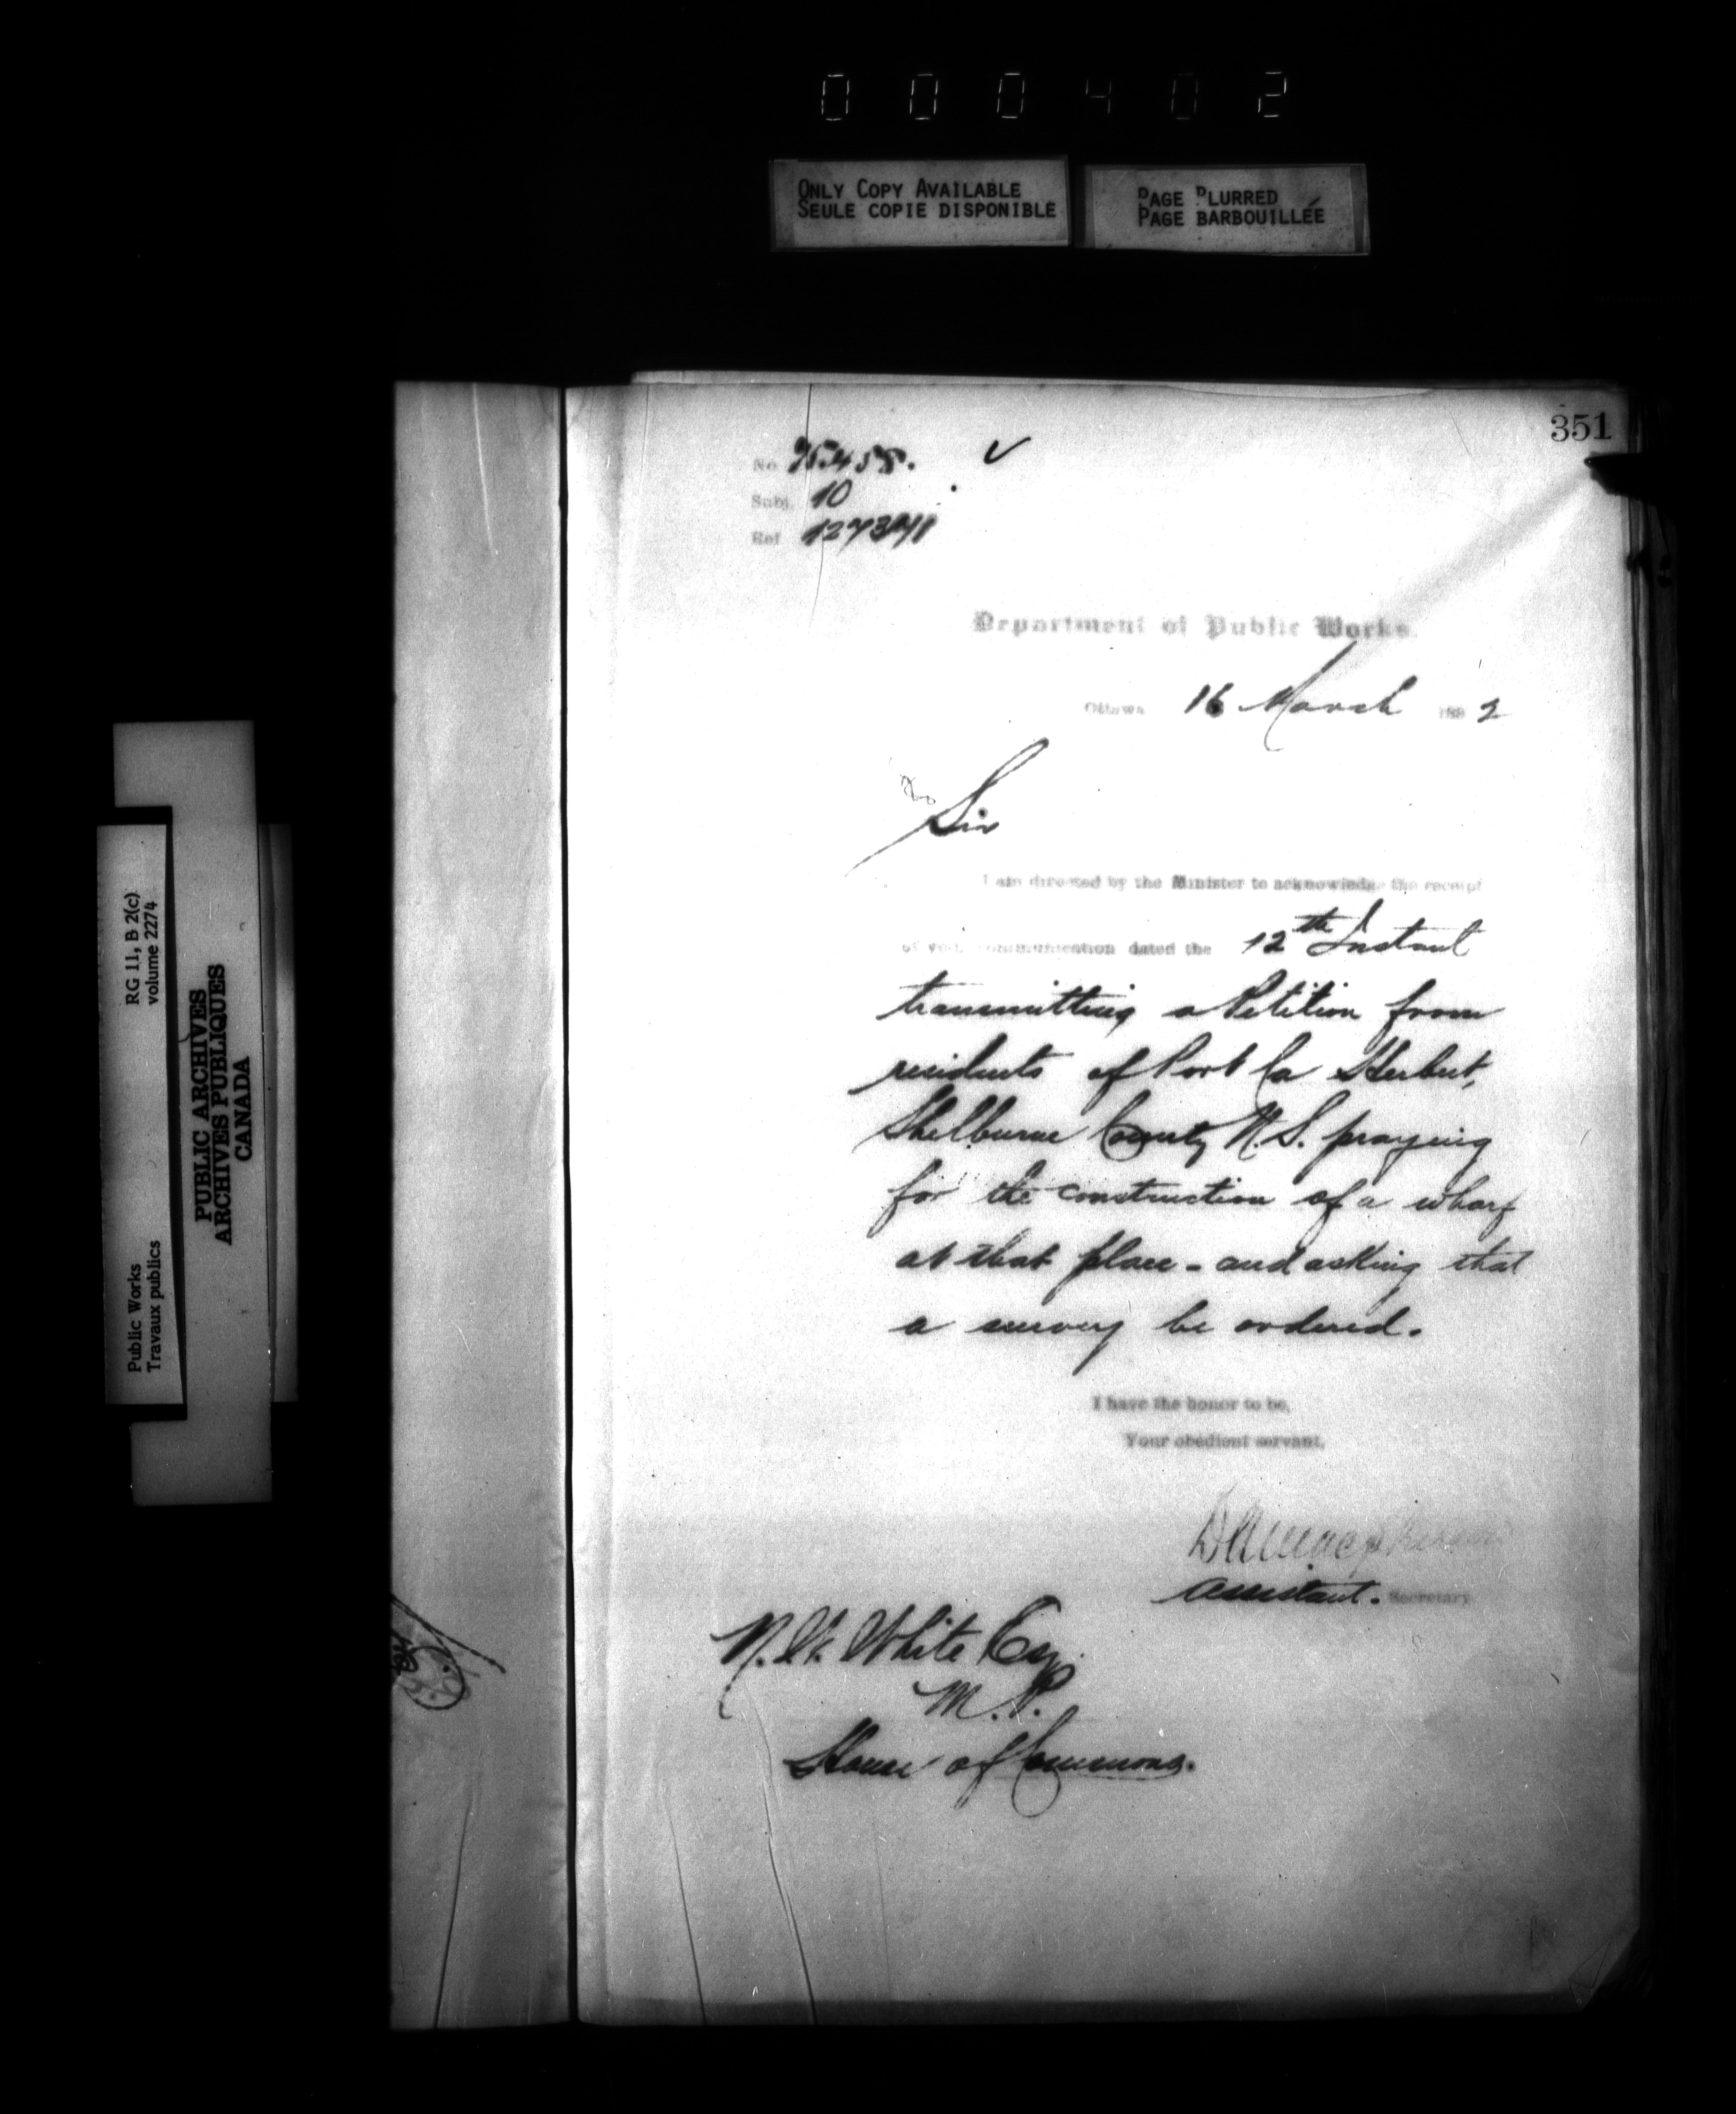 000402
ONLY COPY AVAILABLE
SEULE COPIE DISPONIBLE
PAGE BLURRED
PAGE BARBOUILLÉE
351
No.
Subj. 10
Ref.
Department of Public Works.
Ottawa 16 March 1882
Sir
I am directed by the Minister to acknowledge the receipt
of your communication dated the 12th Instant
transmitting a Petition from
residents of Port La Herbert,
Shelburne County N.S. praying
for the construction of a wharf
at that place - and asking that
a survey be ordered.
I have the honor to be,
Your obedient servant,
Assistant. Secretary
N. W. White Esq.
M.P.
House of Commons.
Public Works
Travaux publics
RG 11, B 2(c)
volume 2274
PUBLIC ARCHIVES
ARCHIVES PUBLIQUES
CANADA